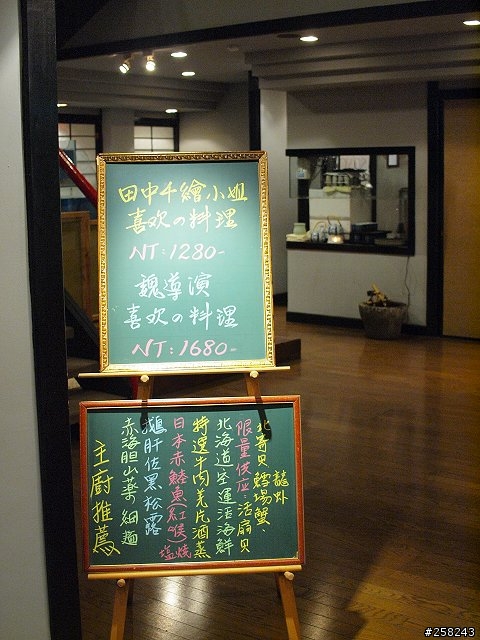 田中千繪小姐
喜歡の料理
NT:1280-
魏導演
喜歡の料理
NT:1680-
龍蝦
北寄貝 鱈場蟹、
限量供座:活扇貝
北海道空運活海鮮
特選牛肉羌片酒蒸
日本赤鯥魚(紅喉)塩燒
鵝肝佐黑松露
赤海胆山藥細麵
主廚推薦
#258243